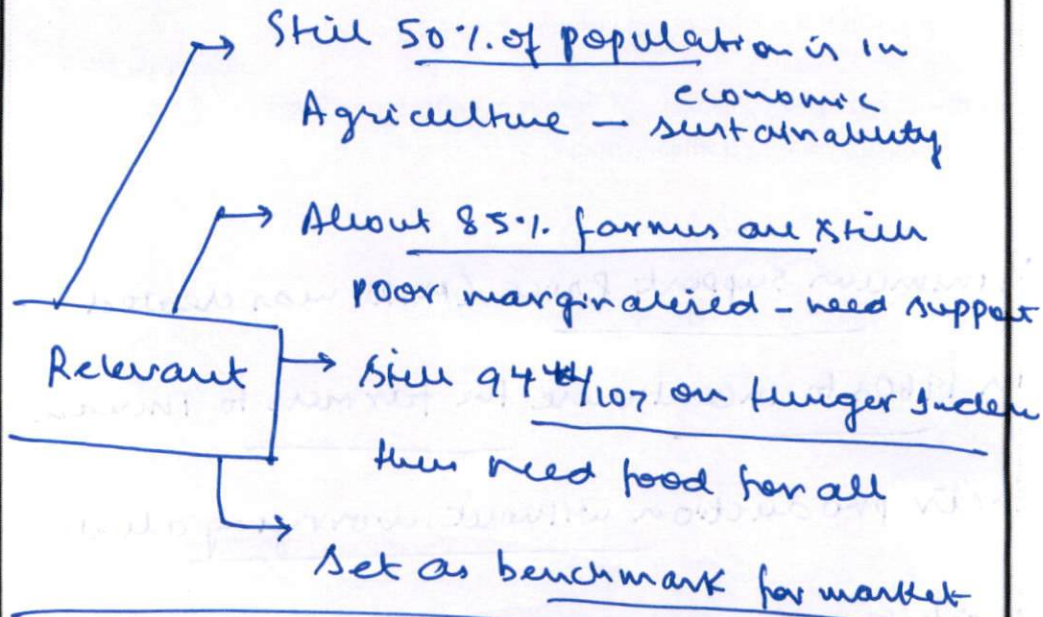 Still 50% of population is in
Agriculture – economic
sustainability
About 85% farmers are still
poor marginalized - need support
Relevant
Still 94th/107 on Hunger Index
thus need food for all
Set as benchmark for market